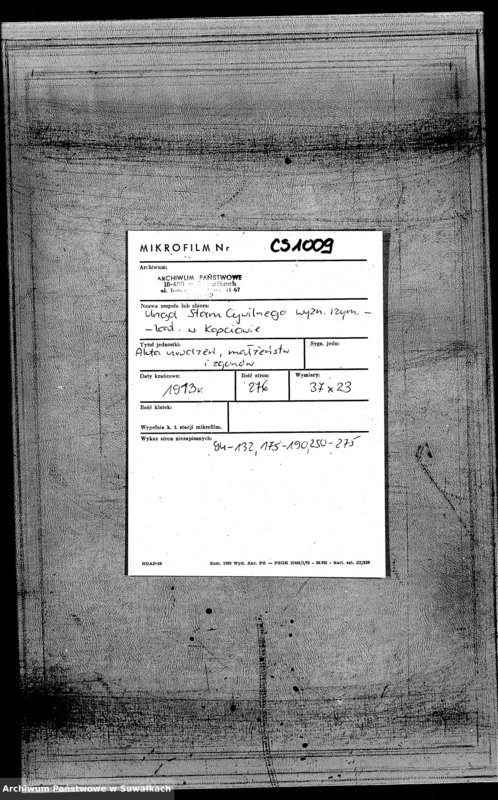 MIKROFILM Nr CS1009
Archiwum:
ARCHIWUM PAŃSTWOWE
16-400
Nazwa zespołu lub zbioru:
Urząd Stanu Cywilnego wyzn. rzym. -
- kat. w Kopciowie
Tytuł jednostki:
Akta urodzeń, małżeństw
i zgonów
Sygn. jedn:
Daty krańcowe:
1913 r.
Ilość stron:
276
Wymiary:
37 x 23
Ilość klatek:
Wypełnia k. t. stacji mikrofilm.
Wykaz stron niezapisanych:
94-132, 175-190, 250-275
Archiwum Państwowe w Suwałkach